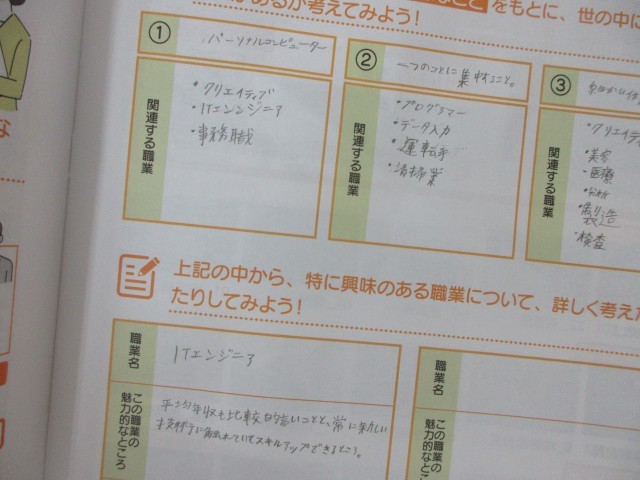 があるか考えてみよう！
をもとに、世の中に
① パーソナルコンピューター
関連する職業
・クリエイティブ
・ITエンジニア
・事務職
② 一つのことに集中すること。
関連する職業
・プログラマー
・データ入力
・運転手
・清掃業
③
関連する職業
・クリエイティ
・美容
・医療
・分析
・製造
・検査
上記の中から、特に興味のある職業について、詳しく考えた
たりしてみよう！
職業名
ITエンジニア
この職業の
魅力的なところ
平均年収も比較的高いことと、常に新しい
技術に触れていてスキルアップできるところ。
職業名
この職業の
魅力的なとこ